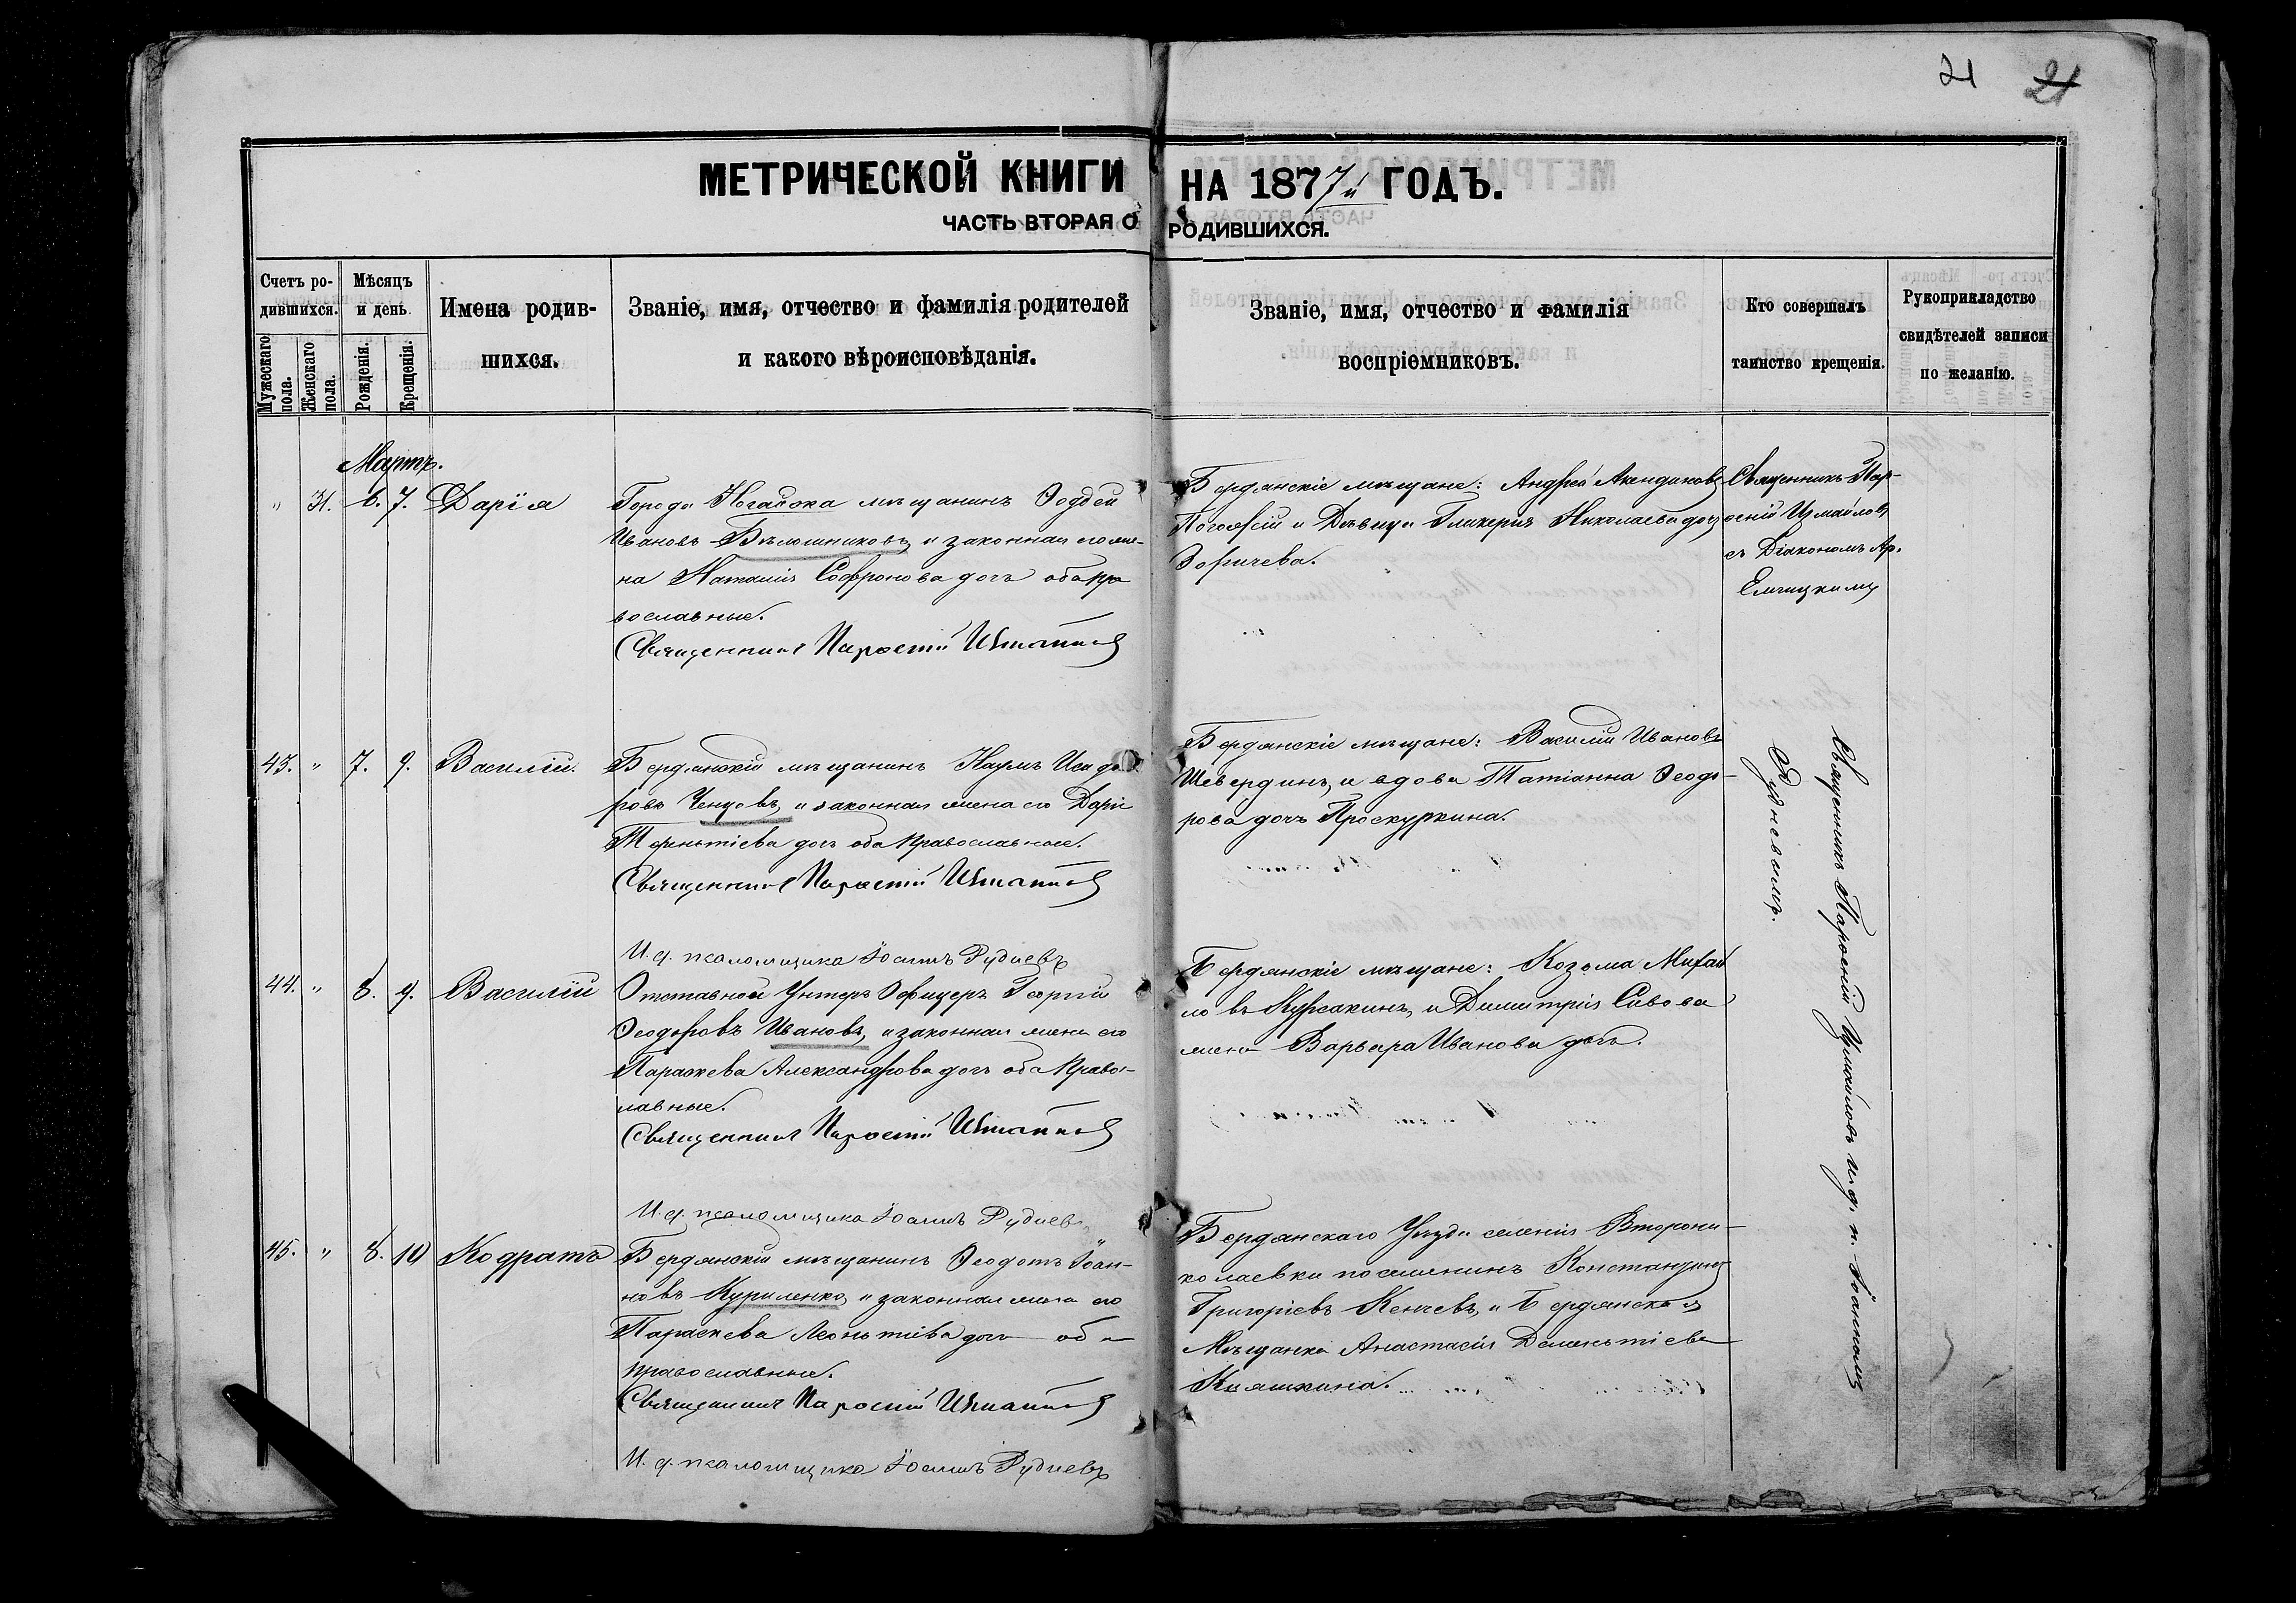 21 21
МЕТРИЧЕСКОЙ КНИГИ НА 1877й ГОДЪ.
ЧАСТЬ ВТОРАЯ О РОДИВШИХСЯ.
Счетъ ро-
дившихся.
Мужескаго пола.
Женскаго пола.
Мѣсяцъ
и день
Рожденія.
Крещенія.
Имена родив-
шихся.
Званіе, имя, отчество и фамилія родителей
и какого вѣроисповѣданія.
Званіе, имя, отчество и фамилія
воспріемниковъ.
Кто совершалъ
таинство крещенія.
Рукоприкладство
свидѣтелей записи
по желанію.
Мартъ.
" 31. 6. 7. Дарія
Города Ногайска мѣщанинъ
Ивановъ Бѣломниковъ, и законная его же-
на Наталія Софронова дочь оба пра
вославные.
Священникъ Парѳеній Измаиловъ
Бердянскіе мѣщане: Андрей
и Дѣвица Гликерія Николаева дочь
Зоричева.
Священникъ Пар-
ѳеній Измайловъ
съ Діакономъ Ар.
43. " 7. 9. Василій.
Бердянскій мѣщанинъ Наумъ Исидо
ровъ Ченцовъ, и законная жена его Дарія
Терентіева дочь оба православные.
Священникъ Парѳеній Измаиловъ
И. д. псаломщика Іоаннъ Рудневъ
Бердянскіе мѣщане: Василій Ивановъ
Шевердинъ, и вдова Татіанна Ѳеодо-
рова дочь Проскуркина.
Священникъ Парѳеній Измаиловъ и. д. п. Іоанномъ
Рудневымъ.
44. " 8. 9. Василій
Отставной Унтеръ Офицеръ Георгій
Ѳеодоровъ Ивановъ, и законная жена его
Параскева Александрова дочь оба Право-
лавные.
Священникъ Парѳеній Измаиловъ
И. д. псаломщика Іоаннъ Рудневъ
Бердянскіе мѣщане: Козьма Михаи
ловъ Курсакинъ, и Димитрія Сивова
жена Варвара Иванова дочь.
45. " 8. 10 Кодратъ
Бердянскій мѣщанинъ Ѳеодотъ Іоан-
новъ Куриленко, и законная жена его
Параскева Леонтіева дочь оба
православные.
Священникъ Парѳеній Измаиловъ
И. д. псаломщика Іоаннъ Рудневъ
Бердянскаго Уѣзда селенія Второни-
колаевки поселенинъ Константинъ
Григоріевъ Кенчевъ, и Бердянская
Мѣщанка Анастасія Дементіева
Княшкина.